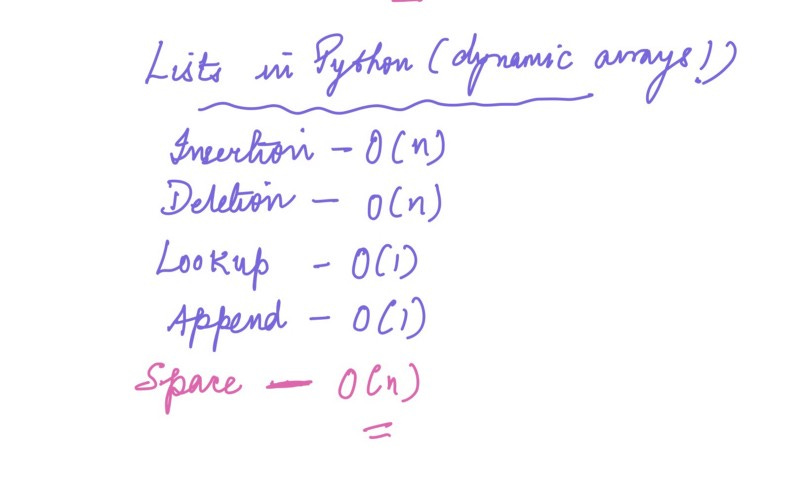 Lists in Python (dynamic arrays!)
Insertion - O(n)
Deletion - O(n)
Lookup - O(1)
Append - O(1)
Space - O(n)